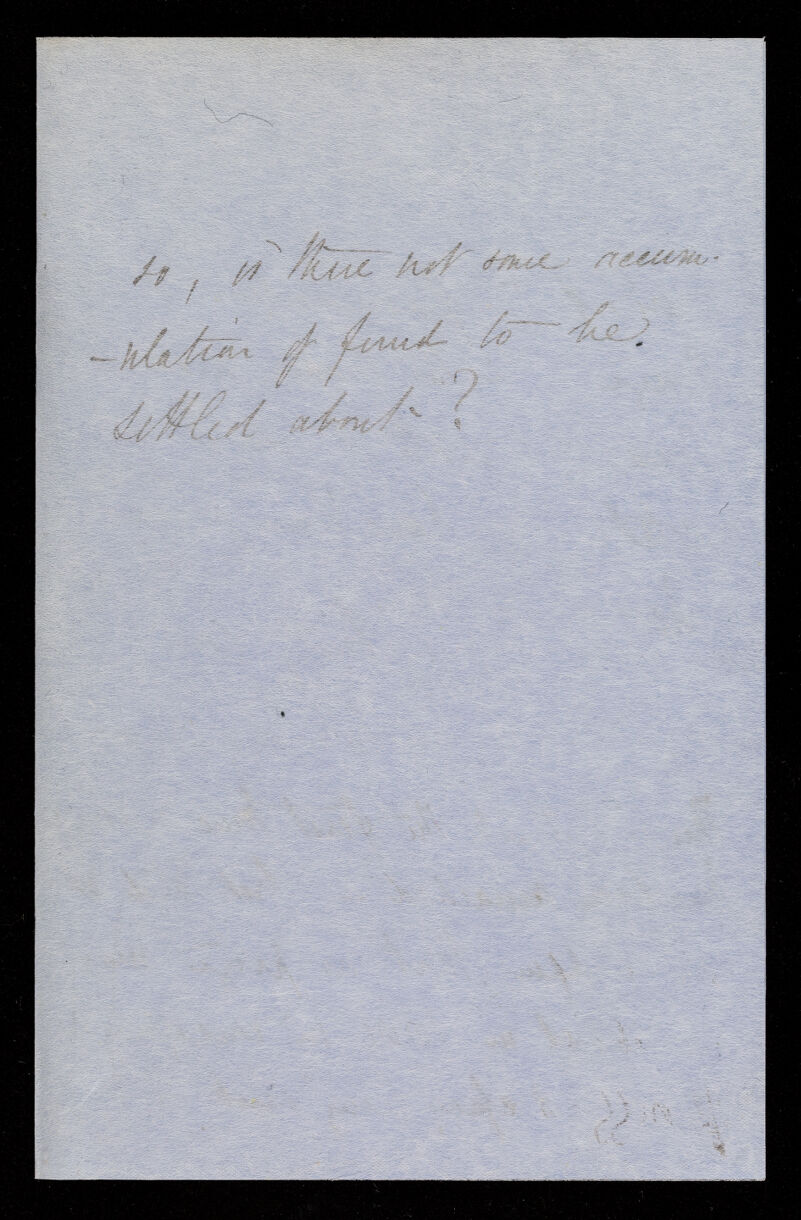 so, is there not some accum-
-ulation of fund to be
settled about?